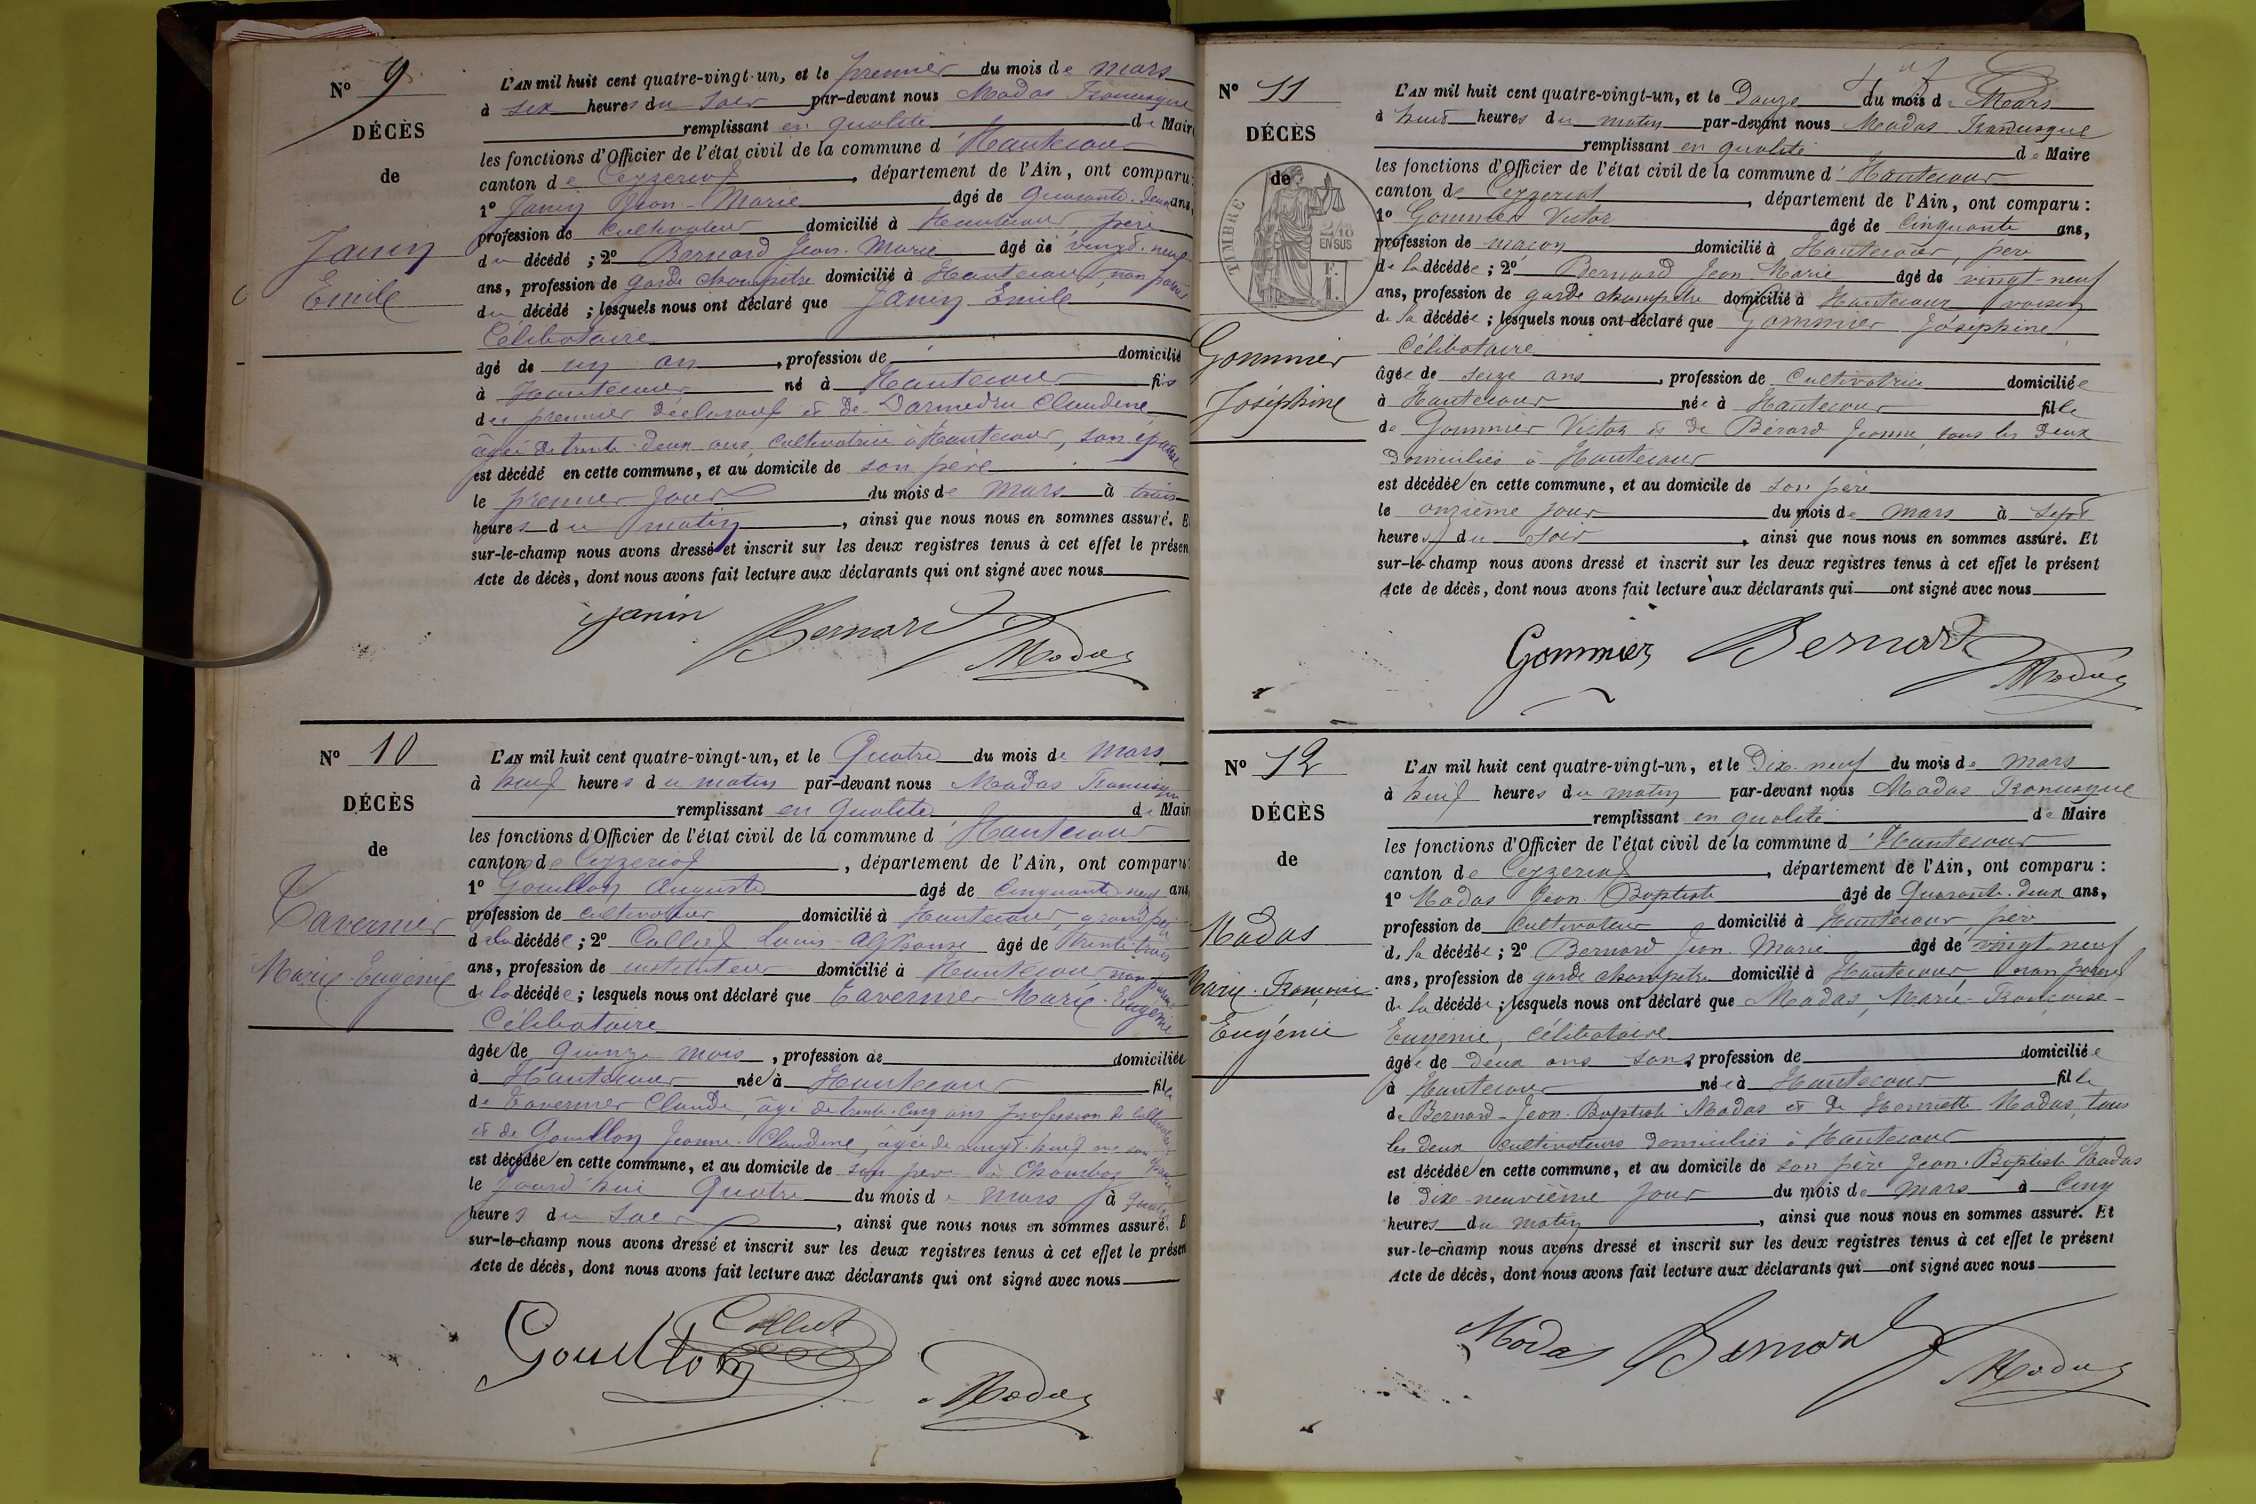 N° 9
DÉCÈS
de
Janin
Emile
L'AN mil huit cent quatre-vingt-un, et le premier du mois de mars
à six heures du soir par-devant nous Modas Francisque
remplissant en qualité de Maire
les fonctions d'Officier de l'état civil de la commune d'Hautecour
canton de Ceyzeriat, département de l'Ain, ont comparu:
1° Janin Jean-Marie âgé de quarante-deux ans,
profession de cultivateur domicilié à Hautecour, père
du décédé ; 2° Bernard Jean-Marie âgé de vingt-neuf
ans, profession de garde champêtre domicilié à Hautecour, non parent
du décédé ; lesquels nous ont déclaré que Janin Emile
Célibataire
âgé de un an, profession de domicilié
à Hautecour né à Hautecour fils
du premier déclarant et de Darmedru Claudine
âgée de trente-deux ans, cultivatrice à Hautecour, son épouse
est décédé en cette commune, et au domicile de son père
le premier jour du mois de mars à trois
heures du matin, ainsi que nous nous en sommes assuré. E
sur-le-champ nous avons dressé et inscrit sur les deux registres tenus à cet effet le présen
Acte de décès, dont nous avons fait lecture aux déclarants qui ont signé avec nous
Janin Bernard Modas
N° 10
DÉCÈS
de
Tavernier
Marie-Eugénie
L'AN mil huit cent quatre-vingt-un, et le Quatre du mois de mars
à neuf heures du matin par-devant nous Modas Francisque
remplissant en qualité de Maire
les fonctions d'Officier de l'état civil de la commune d'Hautecour
canton de Ceyzeriat, département de l'Ain, ont comparu:
1° Gouillon Auguste âgé de cinquante-neuf ans
profession de cultivateur domicilié à Hautecour, grand père
de la décédée ; 2° Collet Louis-Alphonse âgé de trente-trois
ans, profession de instituteur domicilié à Hautecour, non parent
de la décédée ; lesquels nous ont déclaré que Tavernier Marie-Eugénie
Célibataire
âgée de Quinze mois, profession de domiciliée
à Hautecour née à Hautecour fille
de Tavernier Claude, âgé de trente-cinq ans profession de cultivateur
et de Gouillon Jeanne-Claudine, âgée de vingt-neuf ans son épouse
est décédée en cette commune, et au domicile de son père à
le jourd'hui Quatre du mois de mars à quatre
heures du soir, ainsi que nous nous en sommes assuré. E
sur-le-champ nous avons dressé et inscrit sur les deux registres tenus à cet effet le présen
Acte de décès, dont nous avons fait lecture aux déclarants qui ont signé avec nous
Collet
Gouillon Modas
N° 11
DÉCÈS
de
TIMBRE
2/10
EN SUS
Gommier
Joséphine
L'AN mil huit cent quatre-vingt-un, et le Douze du mois de Mars
à huit heures du matin par-devant nous Modas Francisque
remplissant en qualité de Maire
les fonctions d'Officier de l'état civil de la commune d'Hautecour
canton de Ceyzeriat, département de l'Ain, ont comparu :
1° Gommier Victor âgé de cinquante ans,
profession de maçon domicilié à Hautecour, père
de la décédée ; 2° Bernard Jean Marie âgé de vingt-neuf
ans, profession de garde champêtre domicilié à Hautecour, voisin
de la décédée ; lesquels nous ont déclaré que Gommier Joséphine
Célibataire
âgée de seize ans, profession de Cultivatrice domiciliée
à Hautecour née à Hautecour fille
de Gommier Victor et de Bérard Jeanne, tous les deux
domiciliés à Hautecour
est décédée en cette commune, et au domicile de son père
le onzième jour du mois de mars à sept
heures du soir, ainsi que nous nous en sommes assuré. Et
sur-le-champ nous avons dressé et inscrit sur les deux registres tenus à cet effet le présent
Acte de décès, dont nous avons fait lecture aux déclarants qui ont signé avec nous
Gommier Bernard Modas
N° 12
DÉCÈS
de
Modas
Marie-Françoise-
Eugénie
L'AN mil huit cent quatre-vingt-un, et le Dix-neuf du mois de mars
à neuf heures du matin par-devant nous Modas Francisque
remplissant en qualité de Maire
les fonctions d'Officier de l'état civil de la commune d'Hautecour
canton de Ceyzeriat, département de l'Ain, ont comparu :
1° Modas Jean-Baptiste âgé de Quarante-deux ans,
profession de Cultivateur domicilié à Hautecour, père
de la décédée ; 2° Bernard Jean-Marie âgé de vingt-neuf
ans, profession de garde champêtre domicilié à Hautecour, non parent
de la décédée ; lesquels nous ont déclaré que Modas, Marie-Françoise-
Eugénie, célibataire
âgée de deux ans sans profession de domiciliée
à Hautecour née à Hautecour fille
de Bernard-Jean-Baptiste Modas et de Henriette Modas, tous
les deux cultivateurs domiciliés à Hautecour
est décédée en cette commune, et au domicile de son père Jean-Baptiste Modas
le Dix-neuvième jour du mois de mars à cinq
heures du matin, ainsi que nous nous en sommes assuré. Et
sur-le-champ nous avons dressé et inscrit sur les deux registres tenus à cet effet le présent
Acte de décès, dont nous avons fait lecture aux déclarants qui ont signé avec nous
Modas Bernard Modas